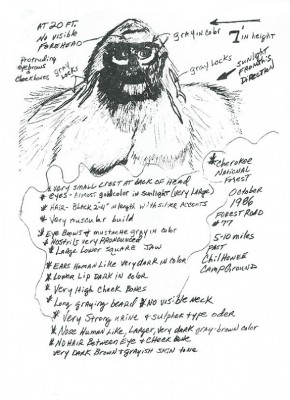 AT 20 FT.
NO VISIBLE
FOREHEAD
gray in color
7' in height
Protruding
eyebrows
&
Cheekbones
gray locks
gray locks
SUNLIGHT
FROM THIS
DIRECTION
* Very small crest at back of head
* eyes - Almost gold color in sunlight (very Large
* HAIR - Black 2-4" in length with silk accents
* Very muscular build
* Eye Brows & mustache gray in color
* Nostrils very PRONOUNCED
* Large Lower square Jaw
* EARS Human Like very dark in color
* Lower Lip DARK in color
* Very High Cheek Bones
* Long graying beard * NO visible neck
* Very Strong urine & sulpher type oder
* Nose Human Like, Larger, very dark gray-brown color
* NO HAIR Between Eye & Cheek Bone
very DARK Brown & grayish skin tone
* Cherokee
NATIONAL
Forest
October
1986
FOREST ROAD
#77
5-10 miles
PAST
Chilhowee
CAMPGROUND